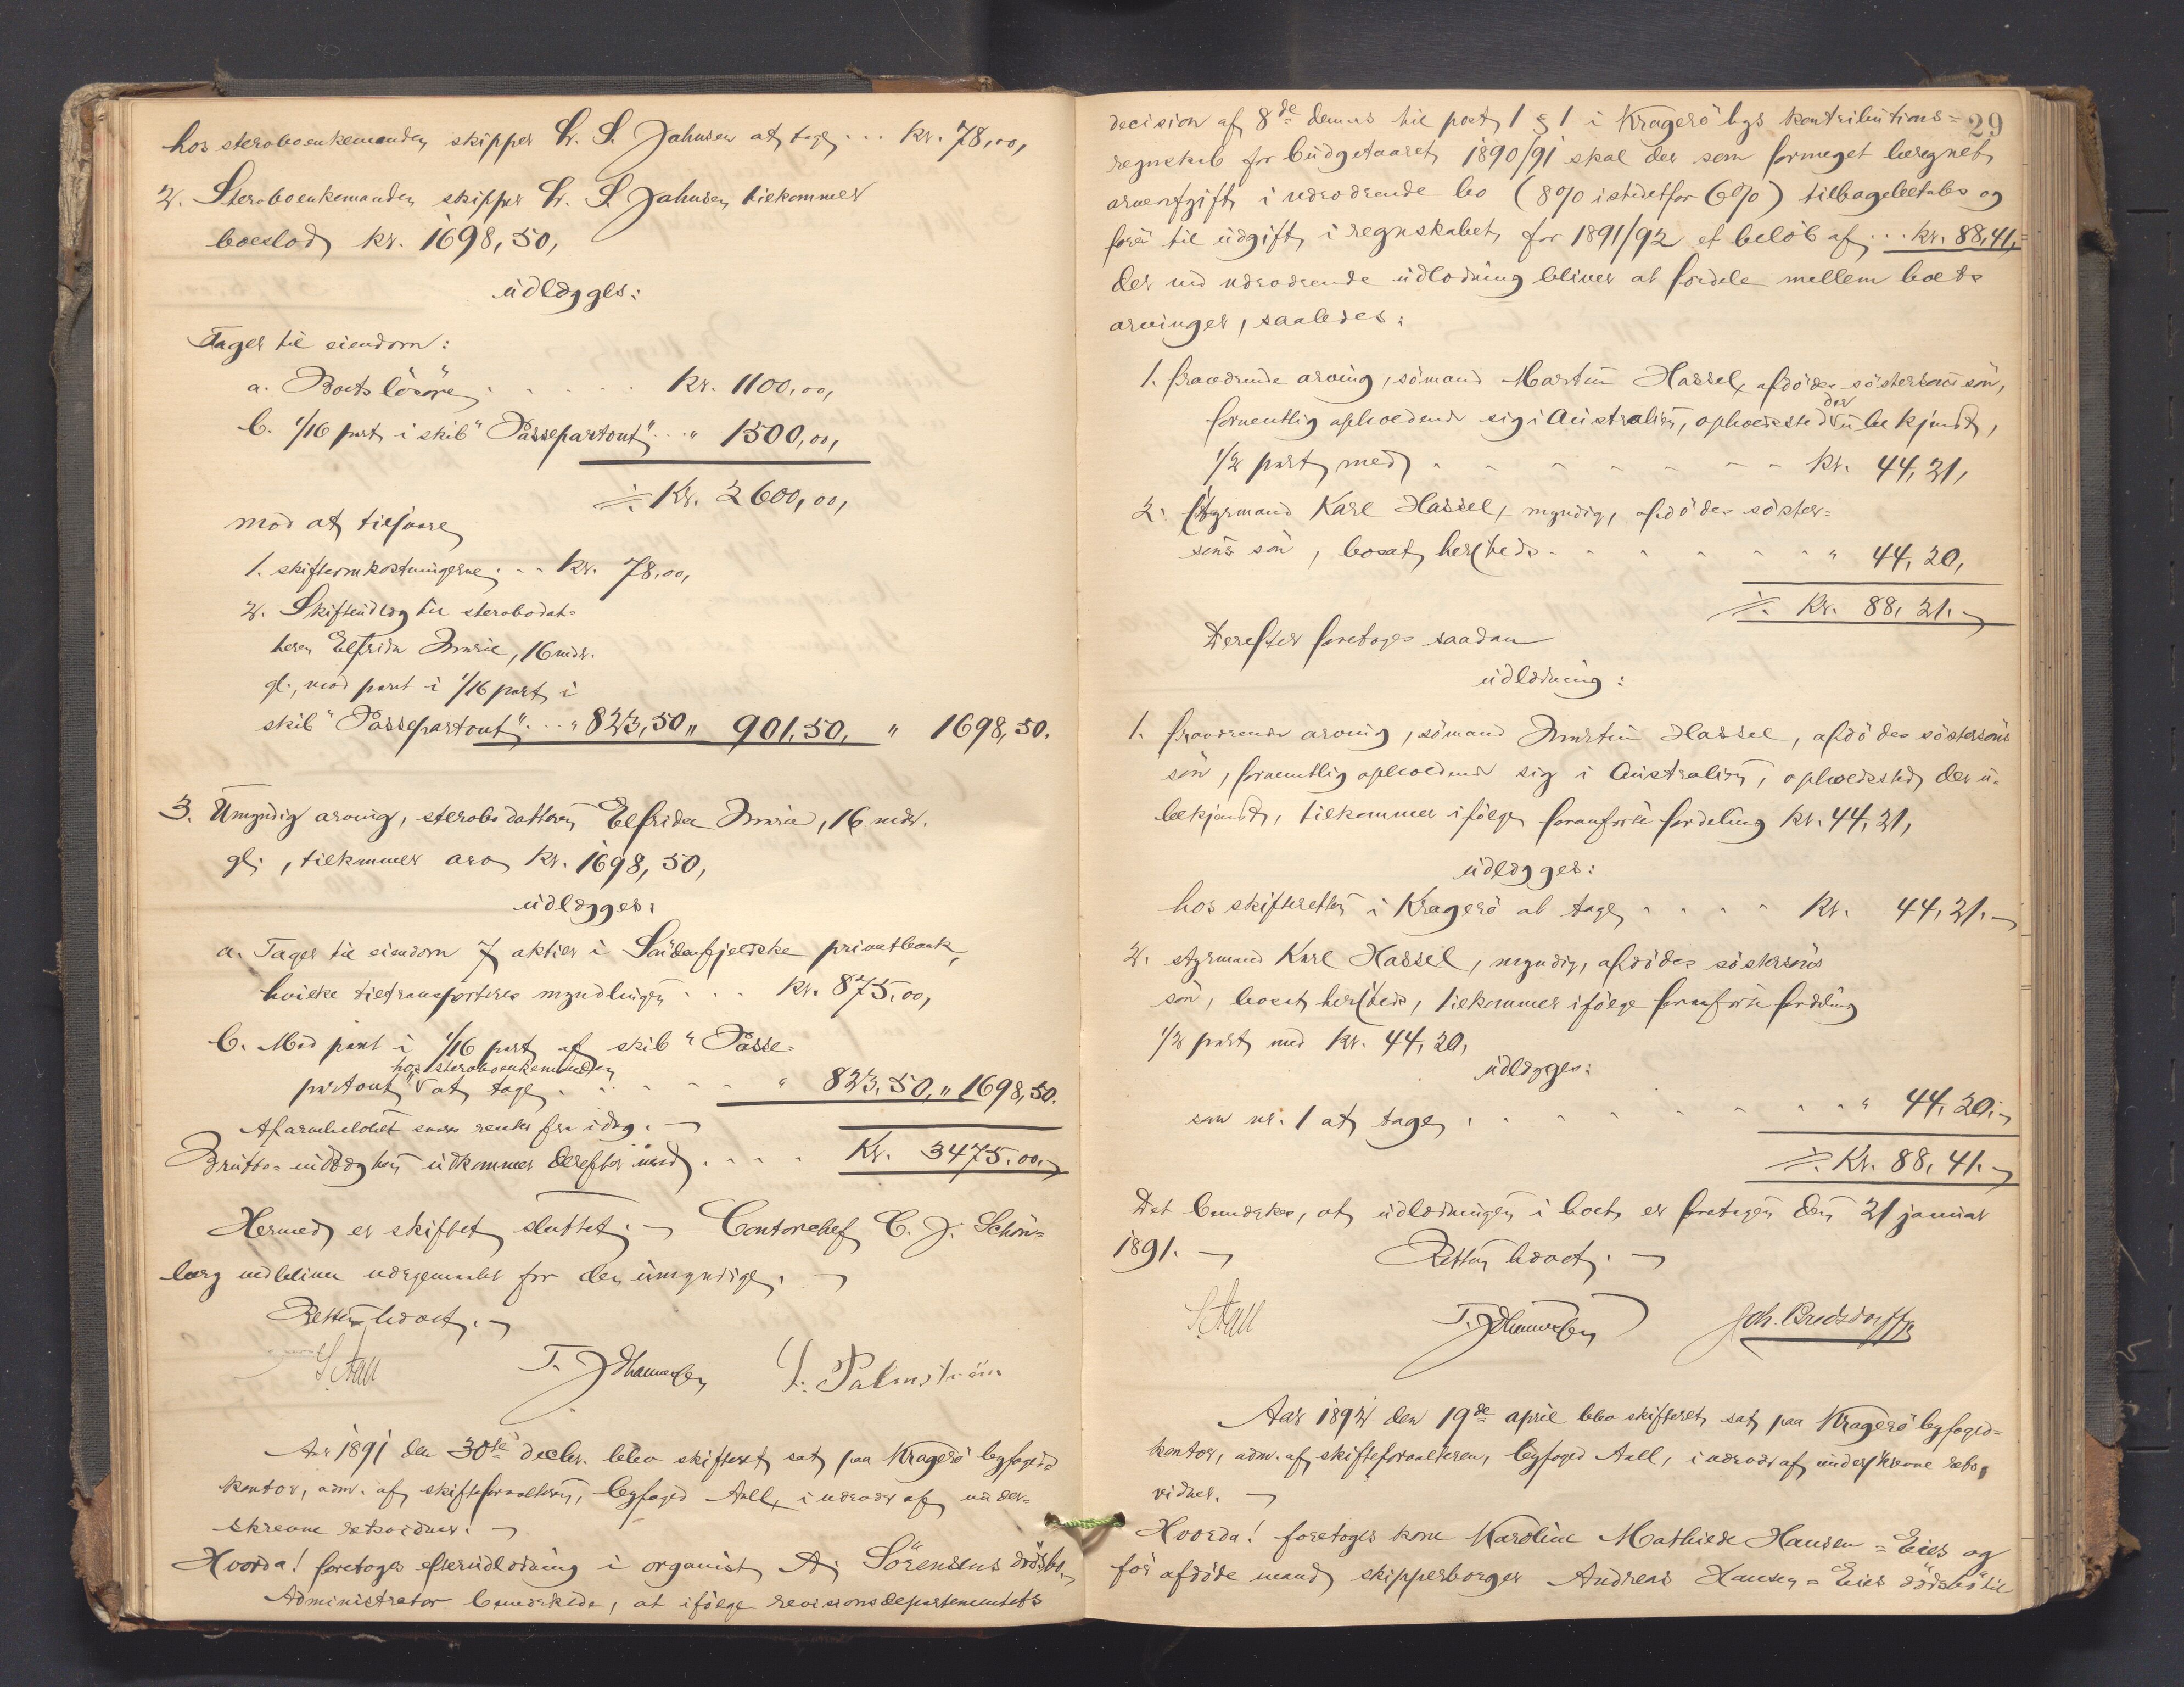 hos sterboenkemanden skipper Chr. S. Jahnsen at tage ... Kr. 78,00,
2. Sterboenkemanden skipper Chr. S. Jahnsen tilkommer
boeslod Kr. 1698,50,
udlægges:
Tager til eiendom:
a. Boets løsøre . . . . . Kr. 1100,00,
b. 1/16 part i skib "Passepartout" ... " 1500,00,
÷ Kr. 2600,00,
mod at tilsvare
1. skifteomkostningerne . . . Kr. 78,00,
2. Skifteudlæg til sterbodat-
teren Elfrida Marie, 16 mdr.
gl., mod pant i 1/16 part i
skib "Passepartout" ... " 823,50 " 901,50, " 1698,50.
3. Umyndig arving, sterbodatteren Elfrida Marie, 16 mdr.
gl., tilkommer arv Kr. 1698,50,
udlægges:
a. Tager til eiendom 7 aktier i Søndenfjeldske privatbank,
hvilke tiltransporteres myndlingen . . . Kr. 875,00,
b. Mod pant i 1/16 part af skib "Passe-
hos sterboenkemanden
partout" at tage . . . . . " 823,50, " 1698,50.
Af arvebeløbet svares renter fra idag. —
Brutto-udlægget udkommer derefter med . . . . Kr. 3475,00. —
Hermed er skiftet sluttet. — Contorchef C. J. Schøn-
berg vil blive værgemaal for den umyndige. —
Retten hævet. —
S. Aall T. Johannessen S. Palmstrøm
Aar 1891 den 30te decbr. blev skifteret sat paa Kragerø byfoged-
kontor, adm. af skifteforvalteren, byfoged Aall, i nærvær af under-
skrevne retsvidner. —
Hvorda! foretoges efterudlodning i organist A. Sörensens dødsbo. —
Administrator bemærkede, at ifølge revisionsdepartementets
29
decision af 8de dennes til post 1 § 1 i Kragerø bys kontributions-
regnskab for budgetaaret 1890/91 skal der som formeget beregnet
arveafgift i nærværende bo (8% istedetfor 6%) tilbagebetales og
føres til udgift i regnskabet for 1891/92 et beløb af ... Kr. 88,41,
der ved nærværende udlodning bliver at fordele mellem boets
arvinger, saaledes:
1. fraværende arving, sømand Martin Hassel, afdødes søstersøns søn,
der
formentlig opholdende sig i Australien, opholdssted ubekjendt,
1/2 part med . . . . . . . . Kr. 44,21,
2. Styrmand Karl Hassel, myndig, afdødes søster-
søns søn, bosat hersteds . . . . . . . " 44,20,
÷ Kr. 88,21. —
Derefter foretoges saadan
udlodning:
1. fraværende arving, sømand Martin Hassel, afdødes søstersøns
søn, formentlig opholdende sig i Australien, opholdssted der u-
bekjendt, tilkommer ifølge foranførte fordeling Kr. 44,21,
udlægges:
hos skifteretten i Kragerø at tage . . . . Kr. 44,21. —
2. styrmand Karl Hassel, myndig, afdødes søstersøns
søn, bosat hersteds, tilkommer ifølge foranførte fordeling
1/2 part med Kr. 44,20,
udlægges:
som nr. 1 at tage . . . . . . . . " 44,20. —
÷ Kr. 88,41. —
Det bemærkes, at udlodningen i boet er foretagen den 21 januar
1891. — Retten hævet. —
S. Aall T. Johannessen Joh. Bredsdorff
Aar 1892 den 19de april blev skifteret sat paa Kragerø byfoged-
kontor, adm. af skifteforvalteren, byfoged Aall, i nærvær af underskrevne rets-
vidner. —
Hvorda! foretoges kone Karoline Mathilde Hansen-Eies og
før afdøde mand skipperborger Andreas Hansen-Eies dødsbo til